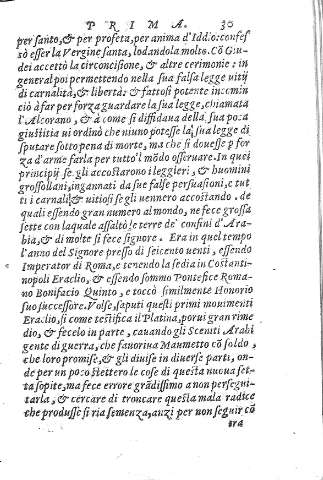 PRIMA. 30
per santo, & per profeta, per anima d'Iddio: confes
sò esser la Vergine santa, lodandola molto. Cō Giu-
dei accettò la circoncisione, & altre cerimonie: in
general poi permettendo nella sua falsa legge uitij
di carnalità, & libertà: & fattosi potente incomin
ciò à far per forza guardare la sua legge, chiamata
l'Alcorano, & à come si diffidaua della sua poca
giustitia ui ordinò che niuno potesse la sua legge di
sputare sotto pena di morte, ma che si douesse p for
za d'arme farla per tutto'l mōdo osseruare. In quei
principij se gli accostarono i leggieri, & huomini
grossollani, ingannati da sue false persuasioni, e tut
ti i carnali & uitiosi se gli uennero accostando. de
quali essendo gran numero al mondo, ne fece grossa
sette con laquale assaltò le terre de' confini d'Ara-
bia, & di molte si fece signore. Era in quel tempo
l'anno del Signore presso di seicento uenti, essendo
Imperator di Roma, e tenendo la sedia in Costanti-
nopoli Eraclio, & essendo sommo Pontefice Roma-
no Bonifacio Quinto, e toccò similmente Honorio
suo successore. Volse, saputi questi primi mouimenti
Eraclio, si come testifica il Platina, porui gran rime
dio, & fecelo in parte, cauando gli Sceniti Arabi
gente di guerra, che fauoriua Maumetto cō soldo,
che loro promise, & gli diuise in diuerse parti, on-
de per un poco stettero le cose di questa nuoua set-
ta sopite, ma fece errore grādissimo a non persegui-
tarla, & cercare di troncare questa mala radice
che produsse si ria semenza, anzi per non seguir cō
tra